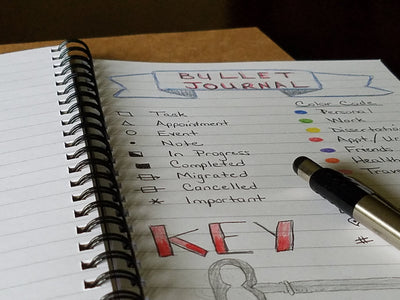 BULLET
JOURNAL
Task
Appointment
Event
Note
In Progress
Completed
Migrated
Cancelled
* Important
Color Code
Personal
Work
Dissertatio
Appt/Ur
Friends
Health
Trav
KEY
#